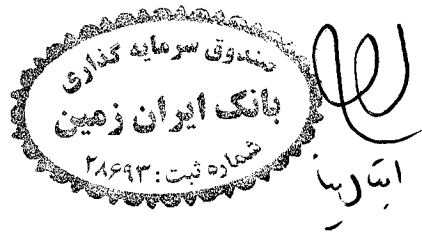 صندوق سرمایه گذاری
بانک ایران زمین
شماره ثبت: ۲۸۶۹۳